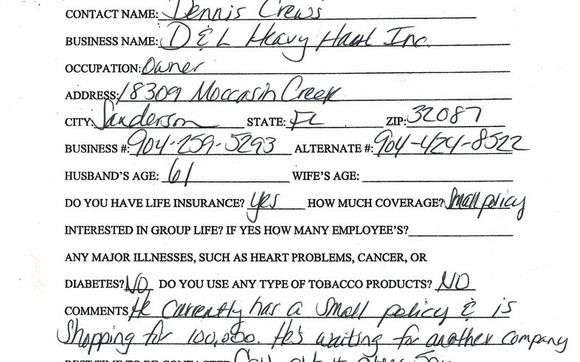 CONTACT NAME: Dennis Crews
BUSINESS NAME: D & L Heavy Haul Inc.
OCCUPATION: Owner
ADDRESS: 18309 Moccasin Creek
CITY: Sanderson STATE: FL ZIP: 32087
BUSINESS #: 904-259-5293 ALTERNATE #: 904-424-8522
HUSBAND'S AGE: 61 WIFE'S AGE:
DO YOU HAVE LIFE INSURANCE? yes HOW MUCH COVERAGE? Small policy
INTERESTED IN GROUP LIFE? IF YES HOW MANY EMPLOYEE'S?
ANY MAJOR ILLNESSES, SUCH AS HEART PROBLEMS, CANCER, OR
DIABETES? NO DO YOU USE ANY TYPE OF TOBACCO PRODUCTS? NO
COMMENTS He currently has a small policy & is
Shopping for 100,000. He's waiting for another company